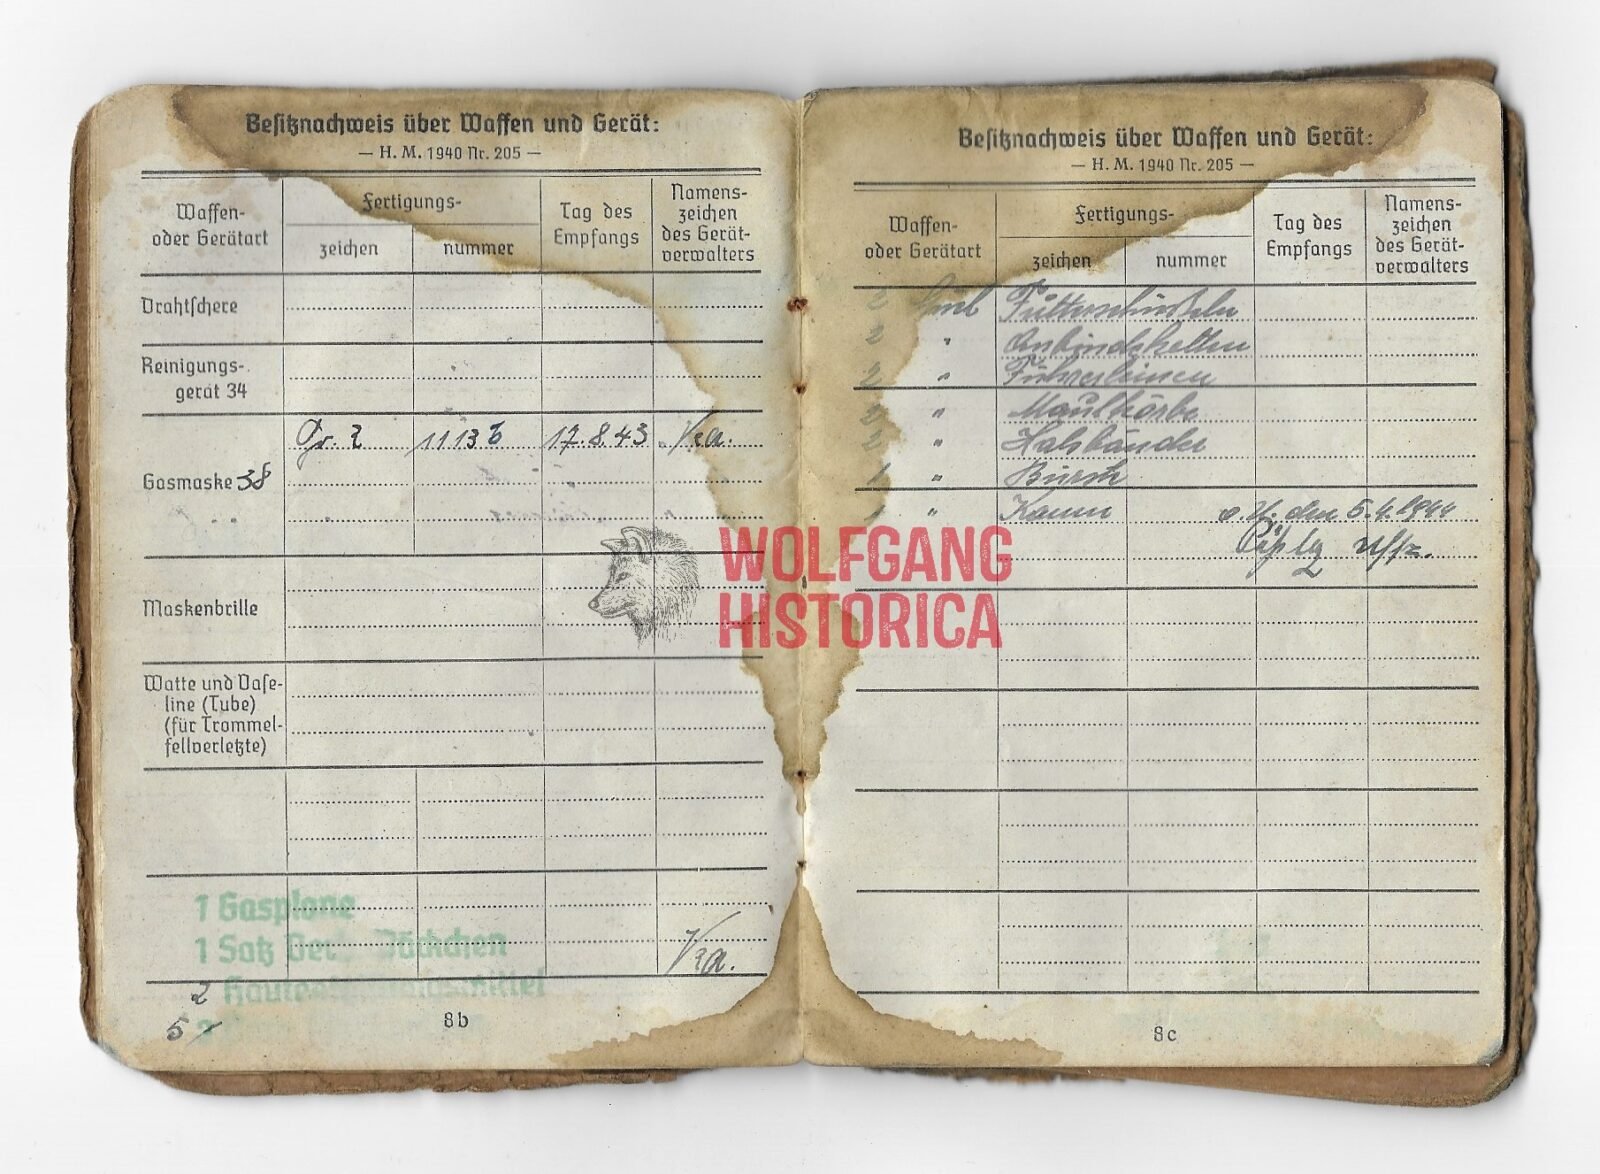 Besitznachweis über Waffen und Gerät:
— H. M. 1940 Nr. 205 —
Waffen-
oder Gerätart
Fertigungs-
zeichen
nummer
Tag des
Empfangs
Namens-
zeichen
des Gerät-
verwalters
Drahtschere
Reinigungs-
gerät 34
Gr. 2 17.8.43
Gasmaske 38
Maskenbrille
Watte und Vase-
line (Tube)
(für Trommel-
fellverletzte)
1 Gasplane
1 Satz
2
5
8b
Besitznachweis über Waffen und Gerät:
— H. M. 1940 Nr. 205 —
Waffen-
oder Gerätart
Fertigungs-
zeichen
nummer
Tag des
Empfangs
Namens-
zeichen
des Gerät-
verwalters
2 Futterschüsseln
2 " Anbindeketten
2 " Führerleinen
2 " Maulkörbe
2 " Halsbänder
1 "
" o. U. den 5.4.1944
Uffz.
8c
WOLFGANG
HISTORICA